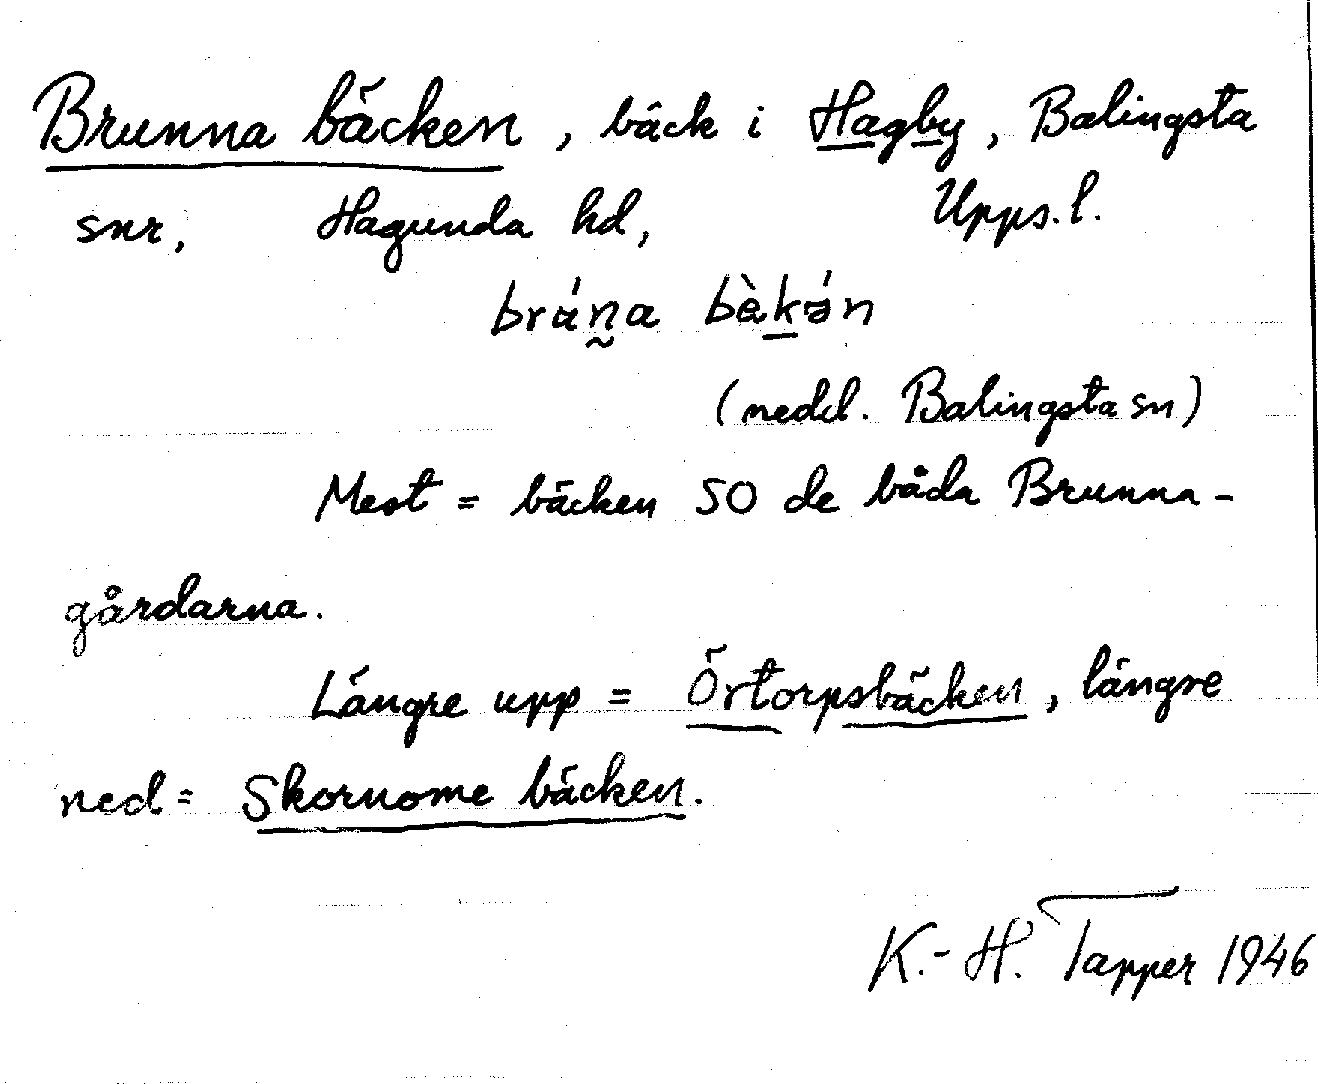 Brunna bäcken, bäck i Hagby, Balingsta
snr, Hagunda hd, Upps. l.
bráṉa bèkə́n
(nedl. Balingsta sn)
Mest = bäcken SO de båda Brunna-
gårdarna.
Längre upp = Örtorpsbäcken, längre
ned = Skornome bäcken.
K.-H. Tapper 1946